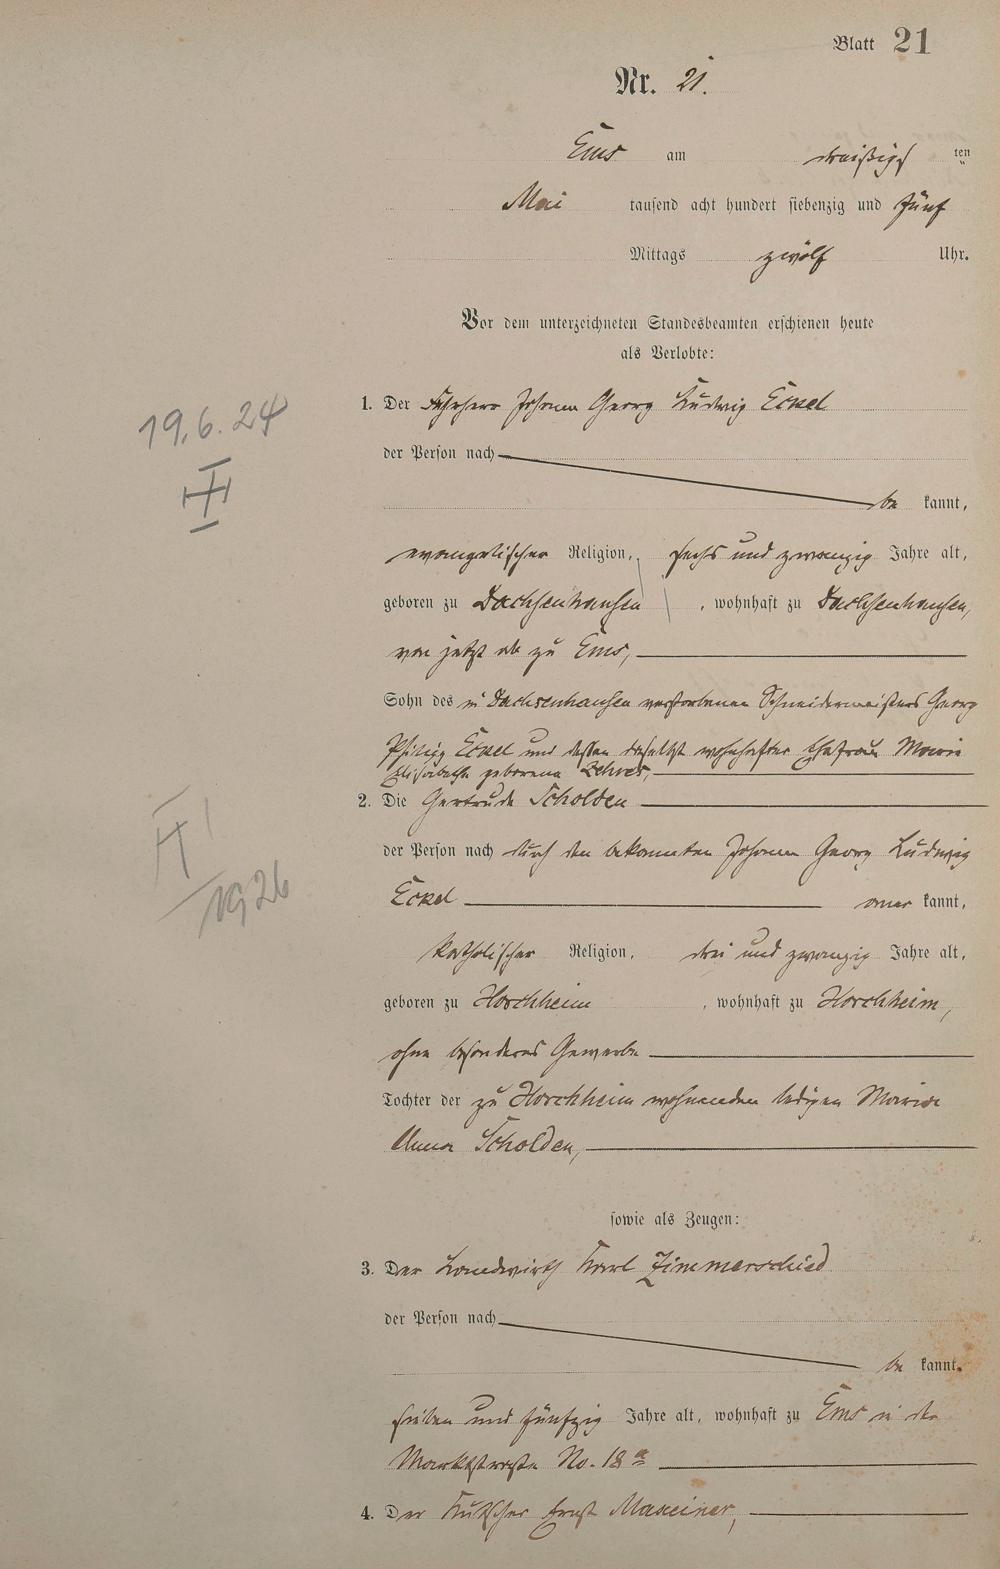 Blatt 21
Nr. 21.
Ems am dreißigsten
Mai tausend acht hundert siebenzig und fünf
Mittags zwölf Uhr.
Vor dem unterzeichneten Standesbeamten erschienen heute
als Verlobte:
1. Der Johann Georg Ludwig Eckel
19.6.24
der Person nach
III
be kannt,
evangelischer Religion, sechs und zwanzig Jahre alt,
geboren zu Dachsenhausen, wohnhaft zu Dachsenhausen,
von jetzt ab zu Ems,
Sohn des in Dachsenhausen verstorbenen Schneidermeisters Georg
Philipp Eckel und dessen daselbst wohnhafter Ehefrau Marie
Elisabeth geborene
2. Die Gertrude Scholden
der Person nach durch den bekannten Johann Georg Ludwig
Eckel aner kannt,
1926
katholischer Religion, drei und zwanzig Jahre alt,
geboren zu Horchheim, wohnhaft zu Horchheim,
ohne besonderes Gewerbe
Tochter der zu Horchheim wohnenden ledigen Maria
Anna Scholden,
sowie als Zeugen:
3. Der Landwirth Karl Zimmerschied
der Person nach
be kannt.
sieben und fünfzig Jahre alt, wohnhaft zu Ems in der
Marktstraße No. 18 a
4. Der Kutscher Ernst Maxeiner,